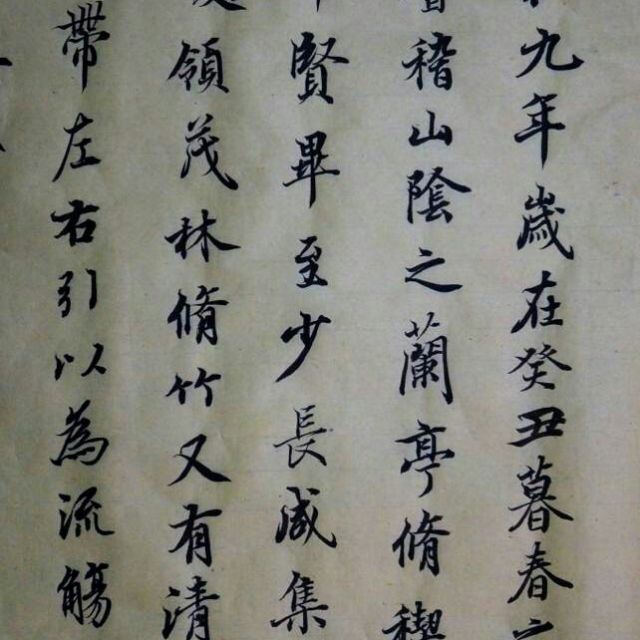 九年歲在癸丑暮春之
稽山陰之蘭亭脩禊
賢畢至少長咸集
領茂林脩竹又有清
帶左右引以為流觴